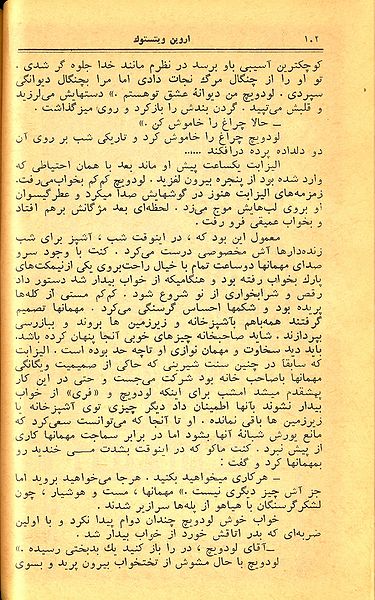 ۱۰۲ اروین ویتستوك
کوچکترین آسیبی باو برسد در نظرم مانند خدا جلوه گر شدی .
تو او را از چنگال مرگ نجات دادی اما مرا بچنگال دیوانگی
سپردی . لودویچ من دیوانهٔ عشق توهستم .» دستهایش می‌لرزید
و قلبش می‌تپید . گردن بندش را بازکرد و روی میز گذاشت .
ــ حالا چراغ را خاموش کن .»
لودویچ چراغ را خاموش کرد و تاریکی شب بر روی آن
دو دلداده پرده درافکند ......
الیزابت یکساعت پیش او ماند بعد با همان احتیاطی که
وارد شده بود از پنجره بیرون لغزید . لودویچ کم‌کم بخواب‌می‌رفت.
زمزمه‌های الیزابت هنوز در گوشهایش صدا میکرد و عطرگیسوان
او بروی لب‌هایش موج می‌زد . لحظه‌ای بعد مژگانش برهم افتاد
و بخواب عمیقی فرو رفت .
معمول این بود که ، در اینوقت شب ، آشپز برای شب
زنده‌دارها آش مخصوصی درست می‌کرد . کنت با وجود سرو
صدای مهمانها دوساعت تمام با خیال راحت‌بروی یکی ازنیمکت‌های
پارك بخواب رفته بود و هنگامیکه از خواب بیدار شد دستور داد
رقص و شرابخواری از نو شروع شود . کم‌کم مستی از کله‌ها
پریده بود و شکمها احساس گرسنگی می‌کرد . مهمانها تصمیم
گرفتند همه‌باهم بآشپزخانه و زیرزمین ها بروند و ببازرسی
بپردازند . شاید صاحبخانه چیزهای خوبی آنجا پنهان کرده باشد.
باید دید سخاوت و مهمان نوازی او تاچه حد بوده است . الیزابت
که سابقاً در چنین سنت شیرینی که حاکی از صمیمیت ویگانگی
مهمانها باصاحب خانه بود شرکت می‌جست و حتی در این کار
پیشقدم میشد امشب برای اینکه لودویچ و «فری» از خواب
بیدار نشوند بآنها اطمینان داد دیگر چیزی توی آشپزخانه یا
زیرزمین ها باقی نمانده . او تا آنجا که می‌توانست سعی‌کرد که
مانع یورش شبانهٔ آنها بشود اما در برابر سماجت مهمانها کاری
از پیش نبرد . کنت ماکو که در اینوقت بشدت مـــی خندید رو
بمهمانها کرد و گفت :
ــ هرکاری میخواهید بکنید . هرجا می‌خواهید بروید اما
جز آش چیز دیگری نیست .» مهمانها ، مست و هوشیار ، چون
لشکرگرسنگان با هیاهو از پله‌ها سرازیر شدند .
خواب خوش لودویچ چندان دوام پیدا نکرد و با اولین
ضربه‌ای که بدر اتاقش خورد از خواب بیدار شد .
ــآقای لودویچ ، در را باز کنید یك بدبختی رسیده .»
لودویچ با حال مشوش از تختخواب بیرون پرید و بسوی